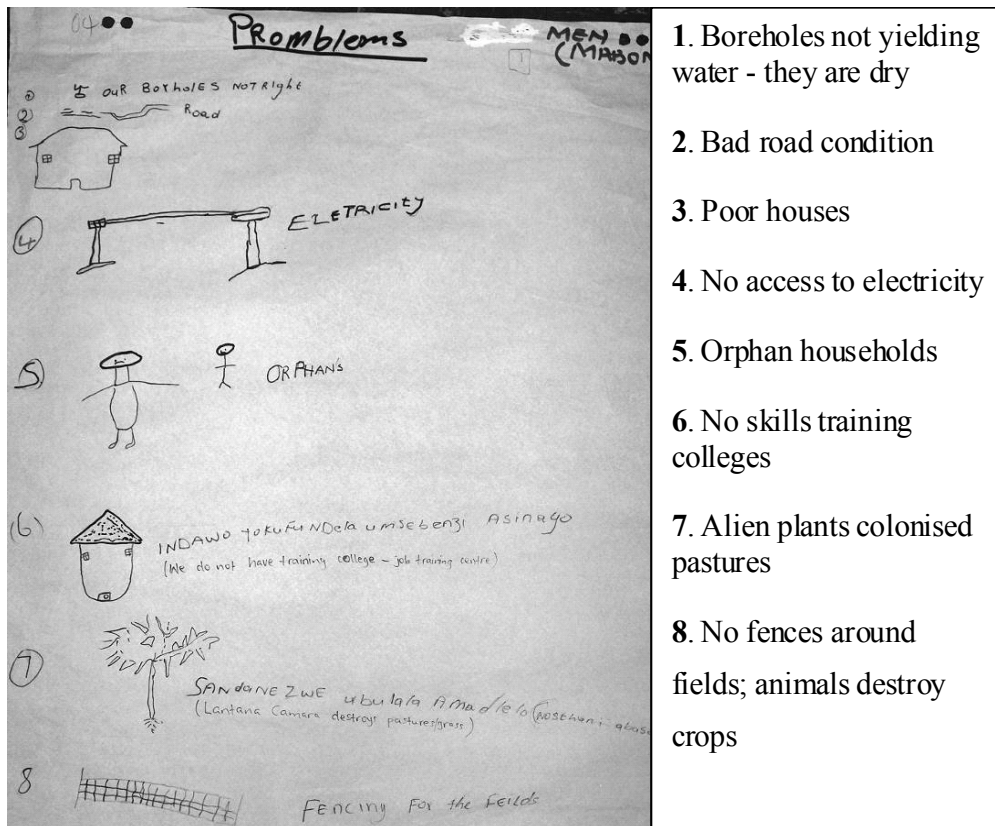 04
Promblems
MEN
(MABON
1
① OUR BORhOLES NOT RigHt
② Road
③
④ ELETRICITY
5) ORPHAN'S
(6) INDAWO yokufuNDela umsebenzi ASINAYO
(We do not have training college - job training centre)
⑦ SANdaNEZWE ubulala AMadlelo
(Lantana Camara destroys pastures/grass)
8 FENCING FOR the FEILDS
1. Boreholes not yielding
water - they are dry
2. Bad road condition
3. Poor houses
4. No access to electricity
5. Orphan households
6. No skills training
colleges
7. Alien plants colonised
pastures
8. No fences around
fields; animals destroy
crops